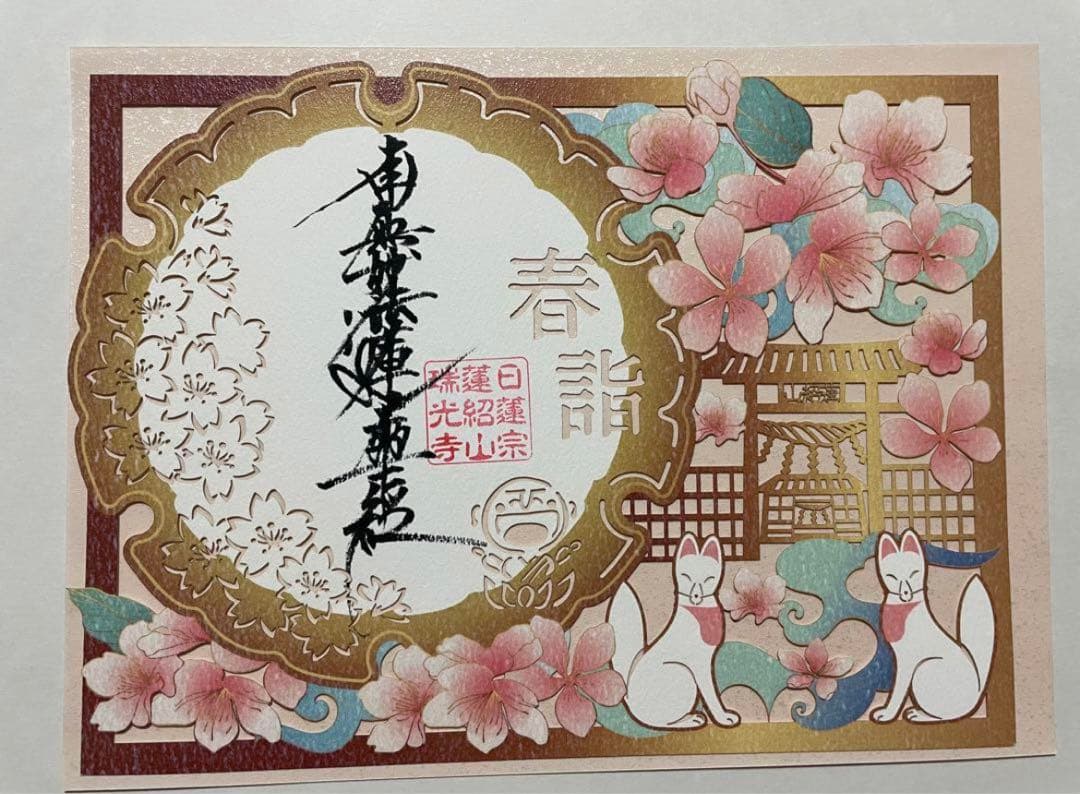 春詣
南無妙法蓮華経
日蓮宗
蓮紹山
瑞光寺